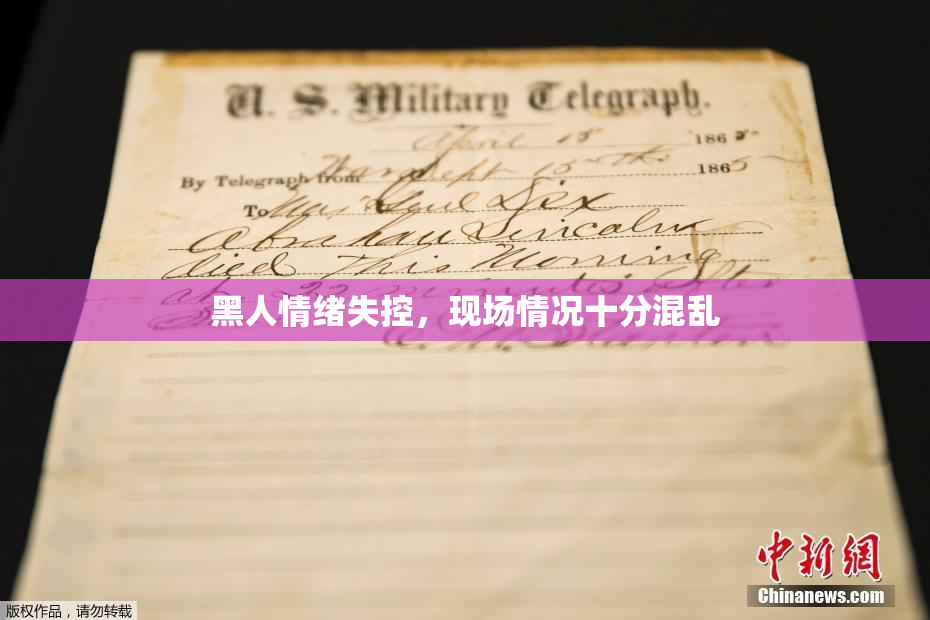 U. S. Military Telegraph.
April 15 1865
By Telegraph from War Dept 15th 1865
To Maj Genl Dix
Abraham Lincoln
died This Morning
at 22 minutes after
黑人情绪失控，现场情况十分混乱
E. M. Stanton
中新网
Chinanews.com
版权作品，请勿转载